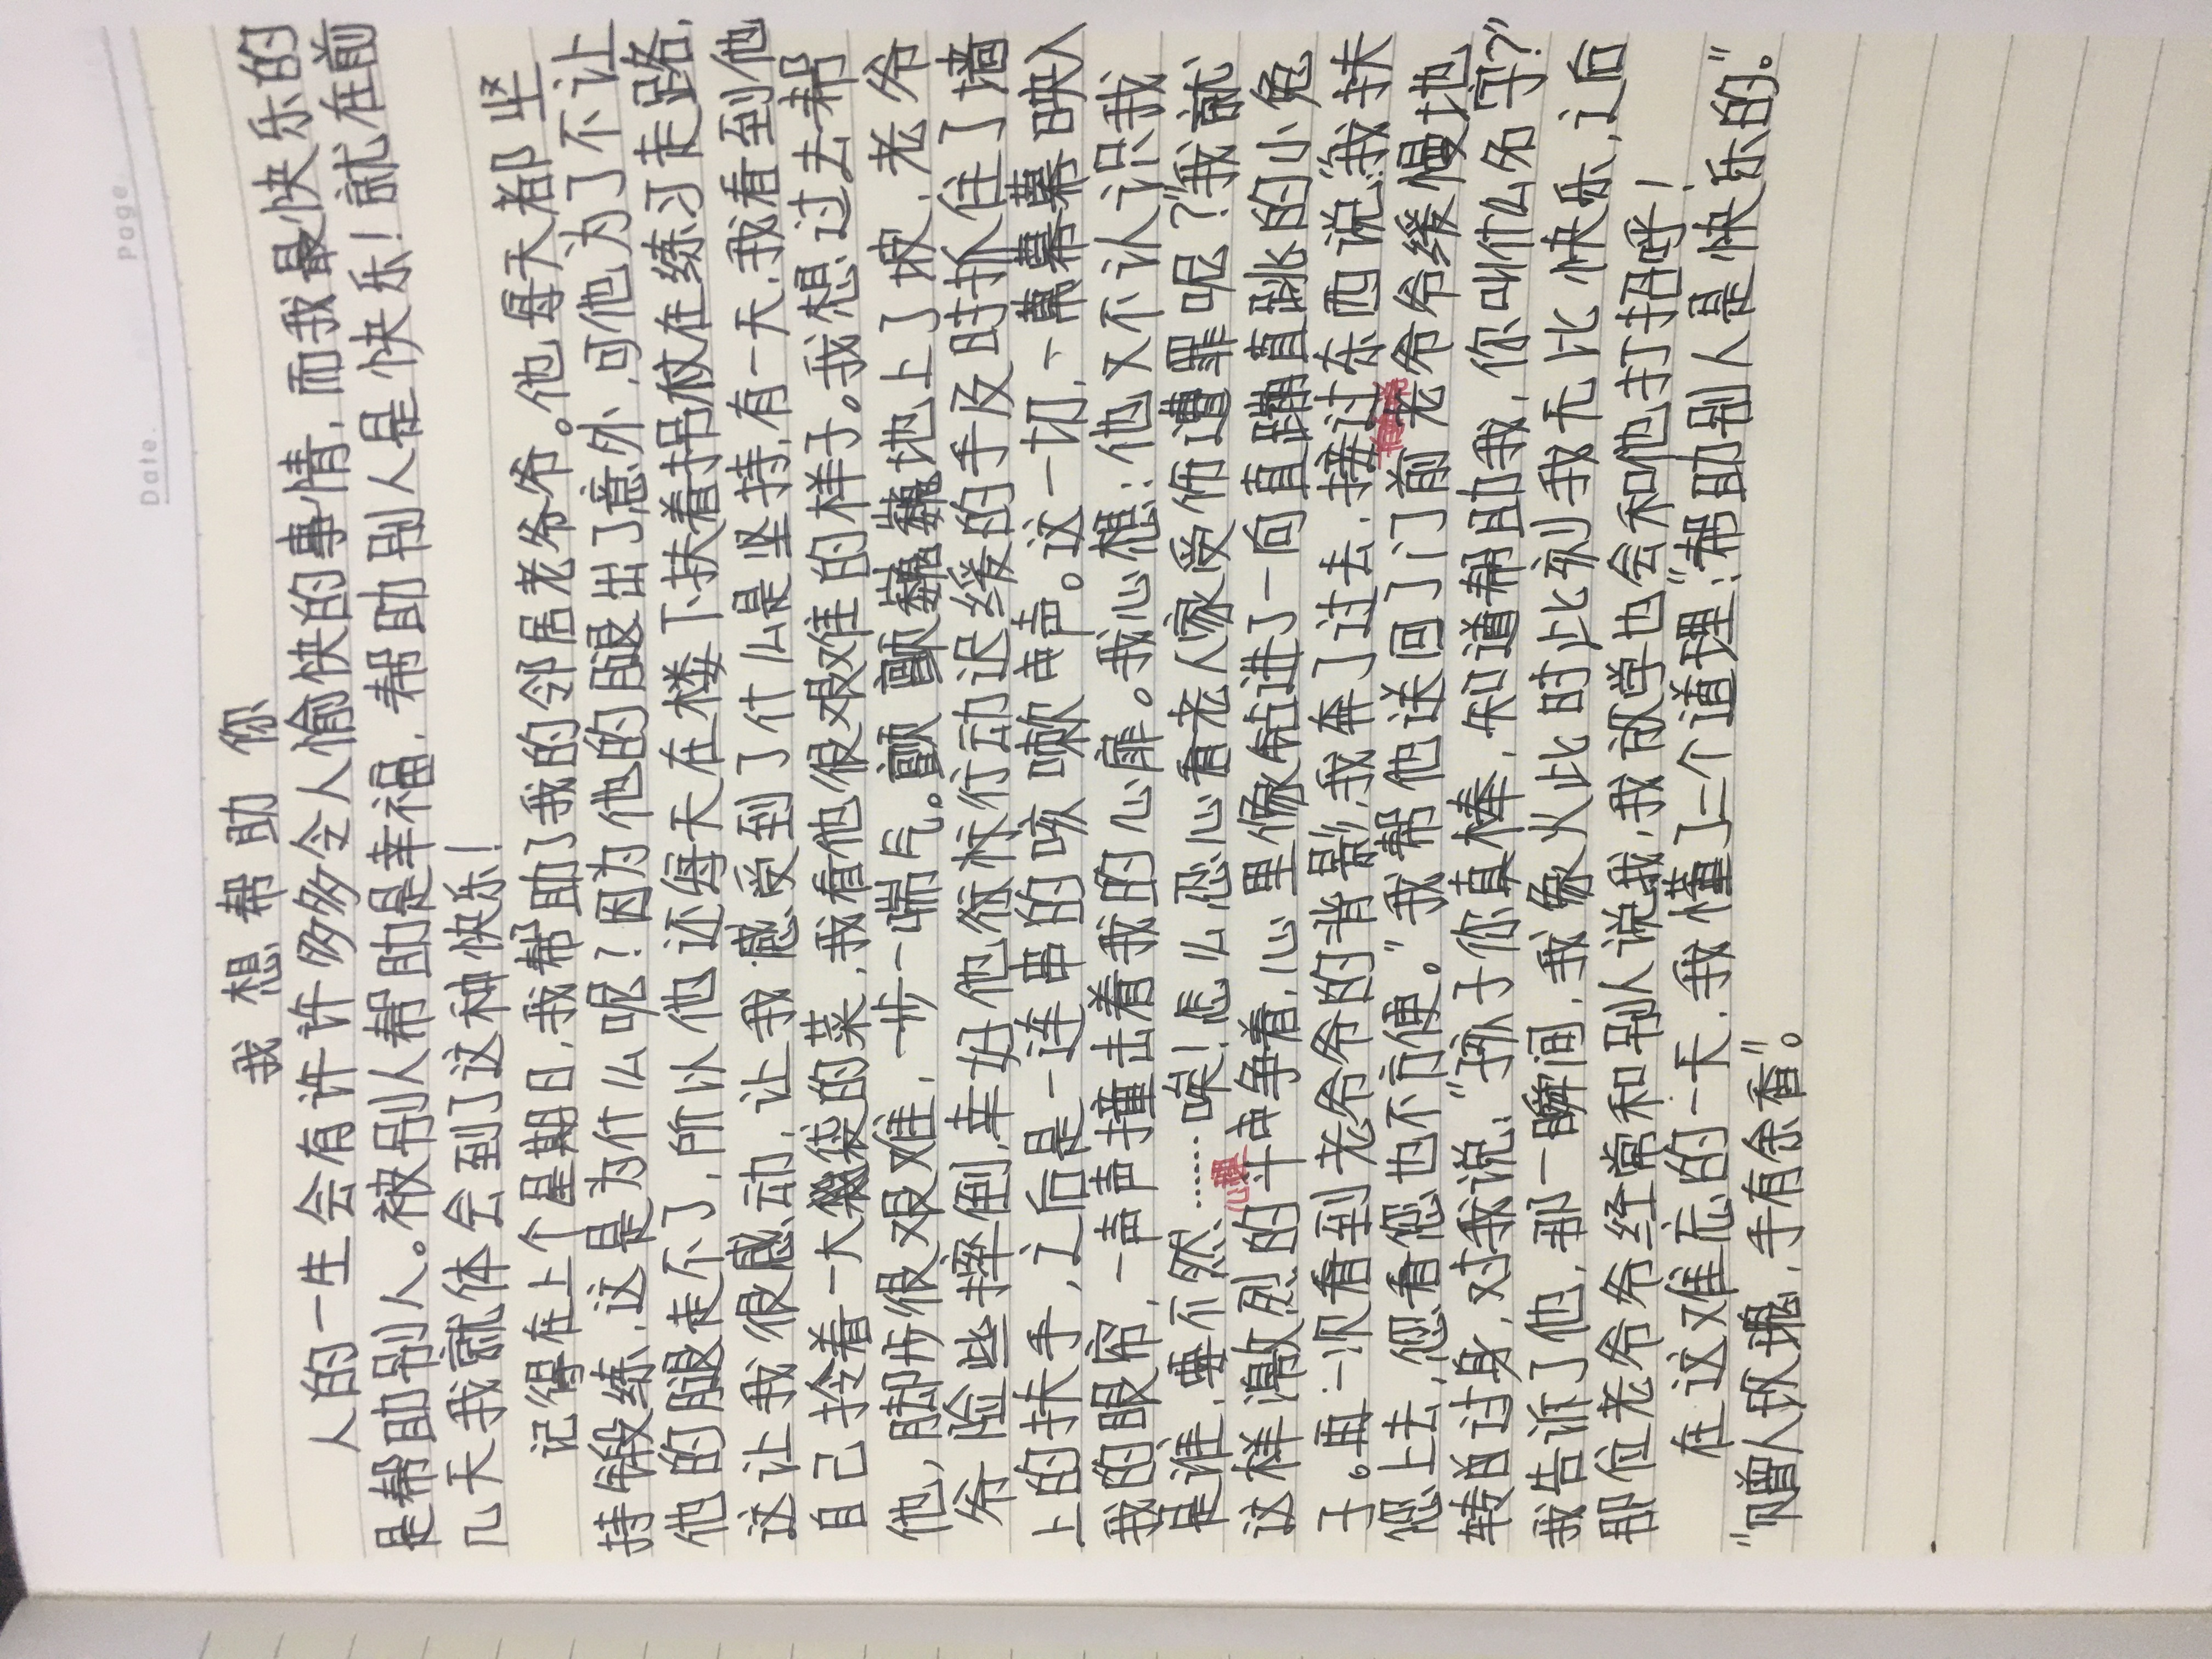 Date.
Page.
我想帮助你
人的一生会有许许多多令人愉快的事情，而我最快乐的
是帮助别人。被别人帮助是幸福，帮助别人是快乐！就在前
几天我就体会到了这种快乐！
记得在上个星期日，我帮助了我的邻居老爷爷。他每天都坚
持锻练，这是为什么呢？因为他的腿出了意外，可他为了不让
他的腿走不了，所以他还每天在楼下扶着拐杖在练习走路，
这让我很感动，让我感受到了什么是坚持，有一天，我看到他
自己拎着一大袋的菜，我看他很艰难的样子。我想过去帮
他，却步很艰难，一步一喘气。颤颤巍巍地上了坡，老爷
爷险些摔倒，幸好他往标行动迟缓的手及时抓住了墙
上的扶手，之后是一连串的咳嗽声。这一切，一幕幕映入
我的眼帘，一声声撞击着我的心扉。我心想：他又不认识我
是谁，要不然……唉！怎么忍心看老人家受伤遭罪呢？”我就
这样激烈的心里斗争着，心里像钻进了一向直蹦直跳的小兔
子。再一次看到老爷爷的背影，我奔了过去，接过东西说：“我扶
您上去，您看您也不方便。”我帮他送回了门前，老爷爷缓慢地
转过身，对我说：“孩子你真棒，知道帮助我，你叫什么名字？”
我告诉了他，那一瞬间，我象火此时此刻我无比快乐，之后
那位老爷爷经常和别人说我，我放学也会和他打招呼！
在这难忘的一天，我懂了一个道理：“帮助别人是快乐的。”
“赠人玫瑰，手有余香”。